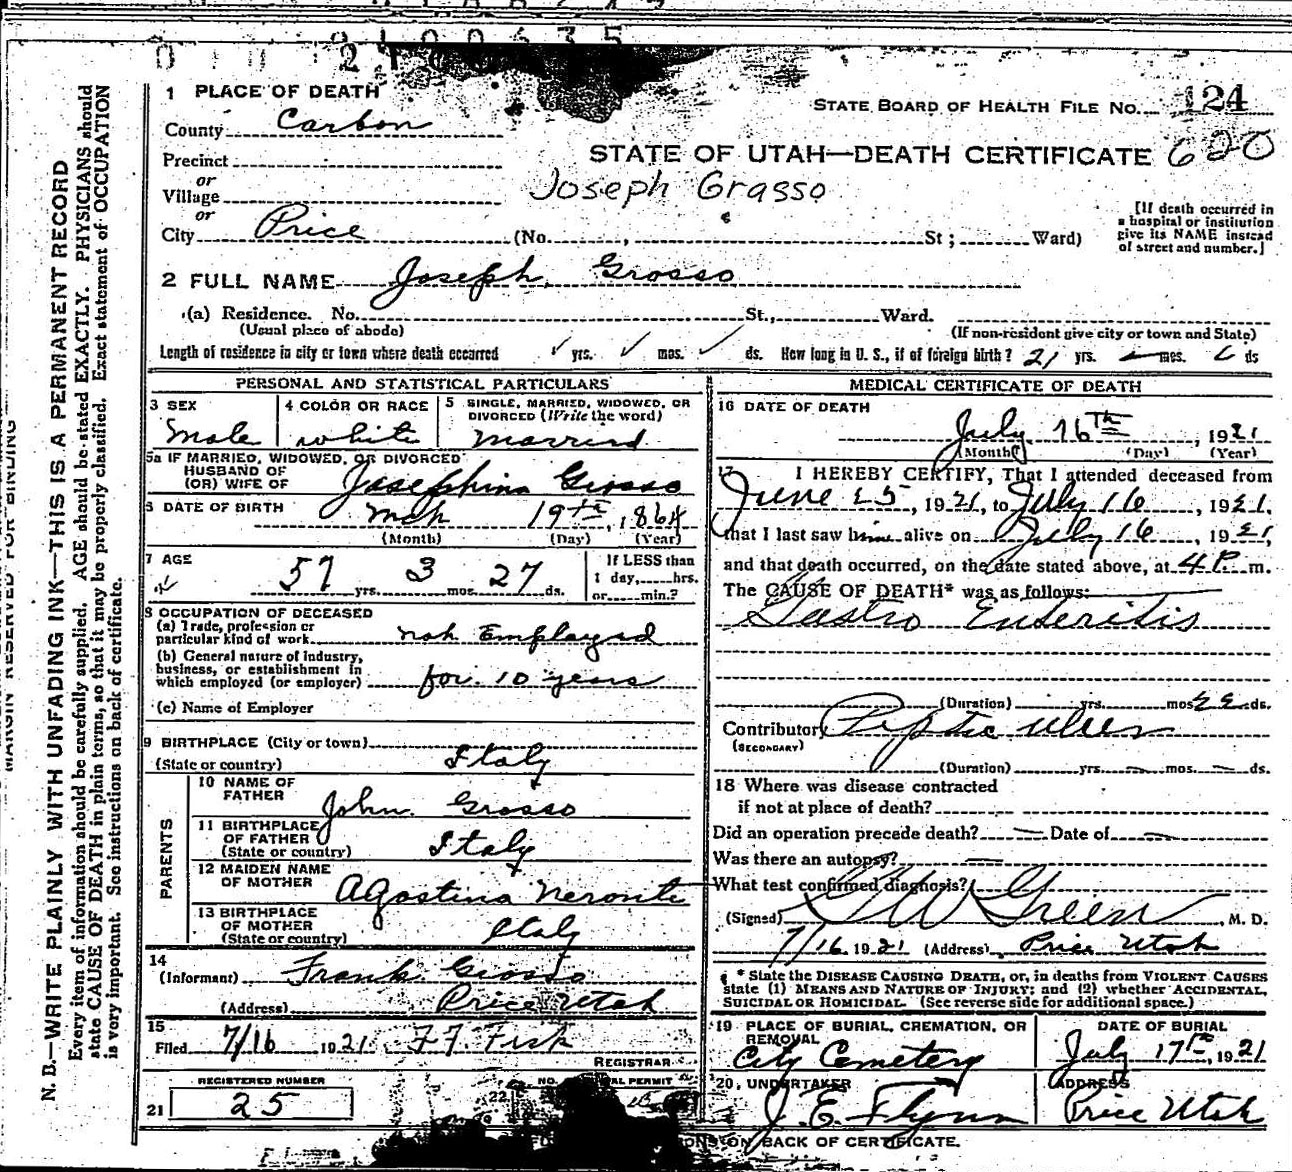 2100635
1 PLACE OF DEATH
STATE BOARD OF HEALTH FILE NO. 124
County Carbon
STATE OF UTAH—DEATH CERTIFICATE 620
Precinct
or
Joseph Grasso
Village
or
City Price (No. , St; Ward)
[If death occurred in
a hospital or institution
give its NAME instead
of street and number.]
2 FULL NAME Joseph Grosso
(a) Residence. No. St., Ward.
(Usual place of abode) (If non-resident give city or town and State)
Length of residence in city or town where death occurred yrs. mos. ds. How long in U. S., if of foreign birth? 21 yrs. mos. ds
PERSONAL AND STATISTICAL PARTICULARS
3 SEX
Male
4 COLOR OR RACE
white
5 SINGLE, MARRIED, WIDOWED, OR
DIVORCED (Write the word)
Married
5a IF MARRIED, WIDOWED, OR DIVORCED
HUSBAND OF
(OR) WIFE OF Josephina Grosso
6 DATE OF BIRTH Mch 19th, 1864
(Month) (Day) (Year)
7 AGE
57 yrs. 3 mos. 27 ds.
If LESS than
1 day, hrs.
or min.?
8 OCCUPATION OF DECEASED
(a) Trade, profession or
particular kind of work not Employed
(b) General nature of industry,
business, or establishment in
which employed (or employer) for 10 years
(c) Name of Employer
9 BIRTHPLACE (City or town)
(State or country) Italy
PARENTS
10 NAME OF
FATHER John Grosso
11 BIRTHPLACE
OF FATHER
(State or country) Italy
12 MAIDEN NAME
OF MOTHER Agostina Neronte
13 BIRTHPLACE
OF MOTHER
(State or country) Italy
14
(Informant) Frank Grosso
(Address) Price Utah
15
Filed 7/16 1921 F. F. Fisk
REGISTRAR
REGISTERED NUMBER
21 25
22 NO. PERMIT
MEDICAL CERTIFICATE OF DEATH
16 DATE OF DEATH
July 16th, 1921
(Month) (Day) (Year)
17 I HEREBY CERTIFY, That I attended deceased from
June 25, 1921, to July 16, 1921,
that I last saw him alive on July 16, 1921,
and that death occurred, on the date stated above, at 4 P. m.
The CAUSE OF DEATH* was as follows:
Gastro Enteritis
(Duration) yrs. mos. 22 ds.
Contributory Peptic ulcer
(SECONDARY)
(Duration) yrs. mos. ds.
18 Where was disease contracted
if not at place of death?
Did an operation precede death? — Date of —
Was there an autopsy? —
What test confirmed diagnosis?
(Signed) Green, M. D.
7/16 1921 (Address) Price Utah
* State the DISEASE CAUSING DEATH, or, in deaths from VIOLENT CAUSES
state (1) MEANS AND NATURE OF INJURY; and (2) whether ACCIDENTAL,
SUICIDAL OR HOMICIDAL. (See reverse side for additional space.)
19 PLACE OF BURIAL, CREMATION, OR
REMOVAL
City Cemetery
DATE OF BURIAL
July 17th, 1921
20, UNDERTAKER
J. E. Flynn
ADDRESS
Price Utah
ON BACK OF CERTIFICATE.
MARGIN RESERVED FOR BINDING
N. B.—WRITE PLAINLY WITH UNFADING INK—THIS IS A PERMANENT RECORD
Every item of information should be carefully supplied. AGE should be stated EXACTLY. PHYSICIANS should
state CAUSE OF DEATH in plain terms, so that it may be properly classified. Exact statement of OCCUPATION
is very important. See instructions on back of certificate.